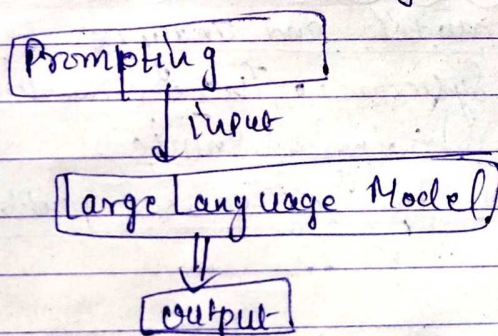 Prompting
input
Large Language Model
output